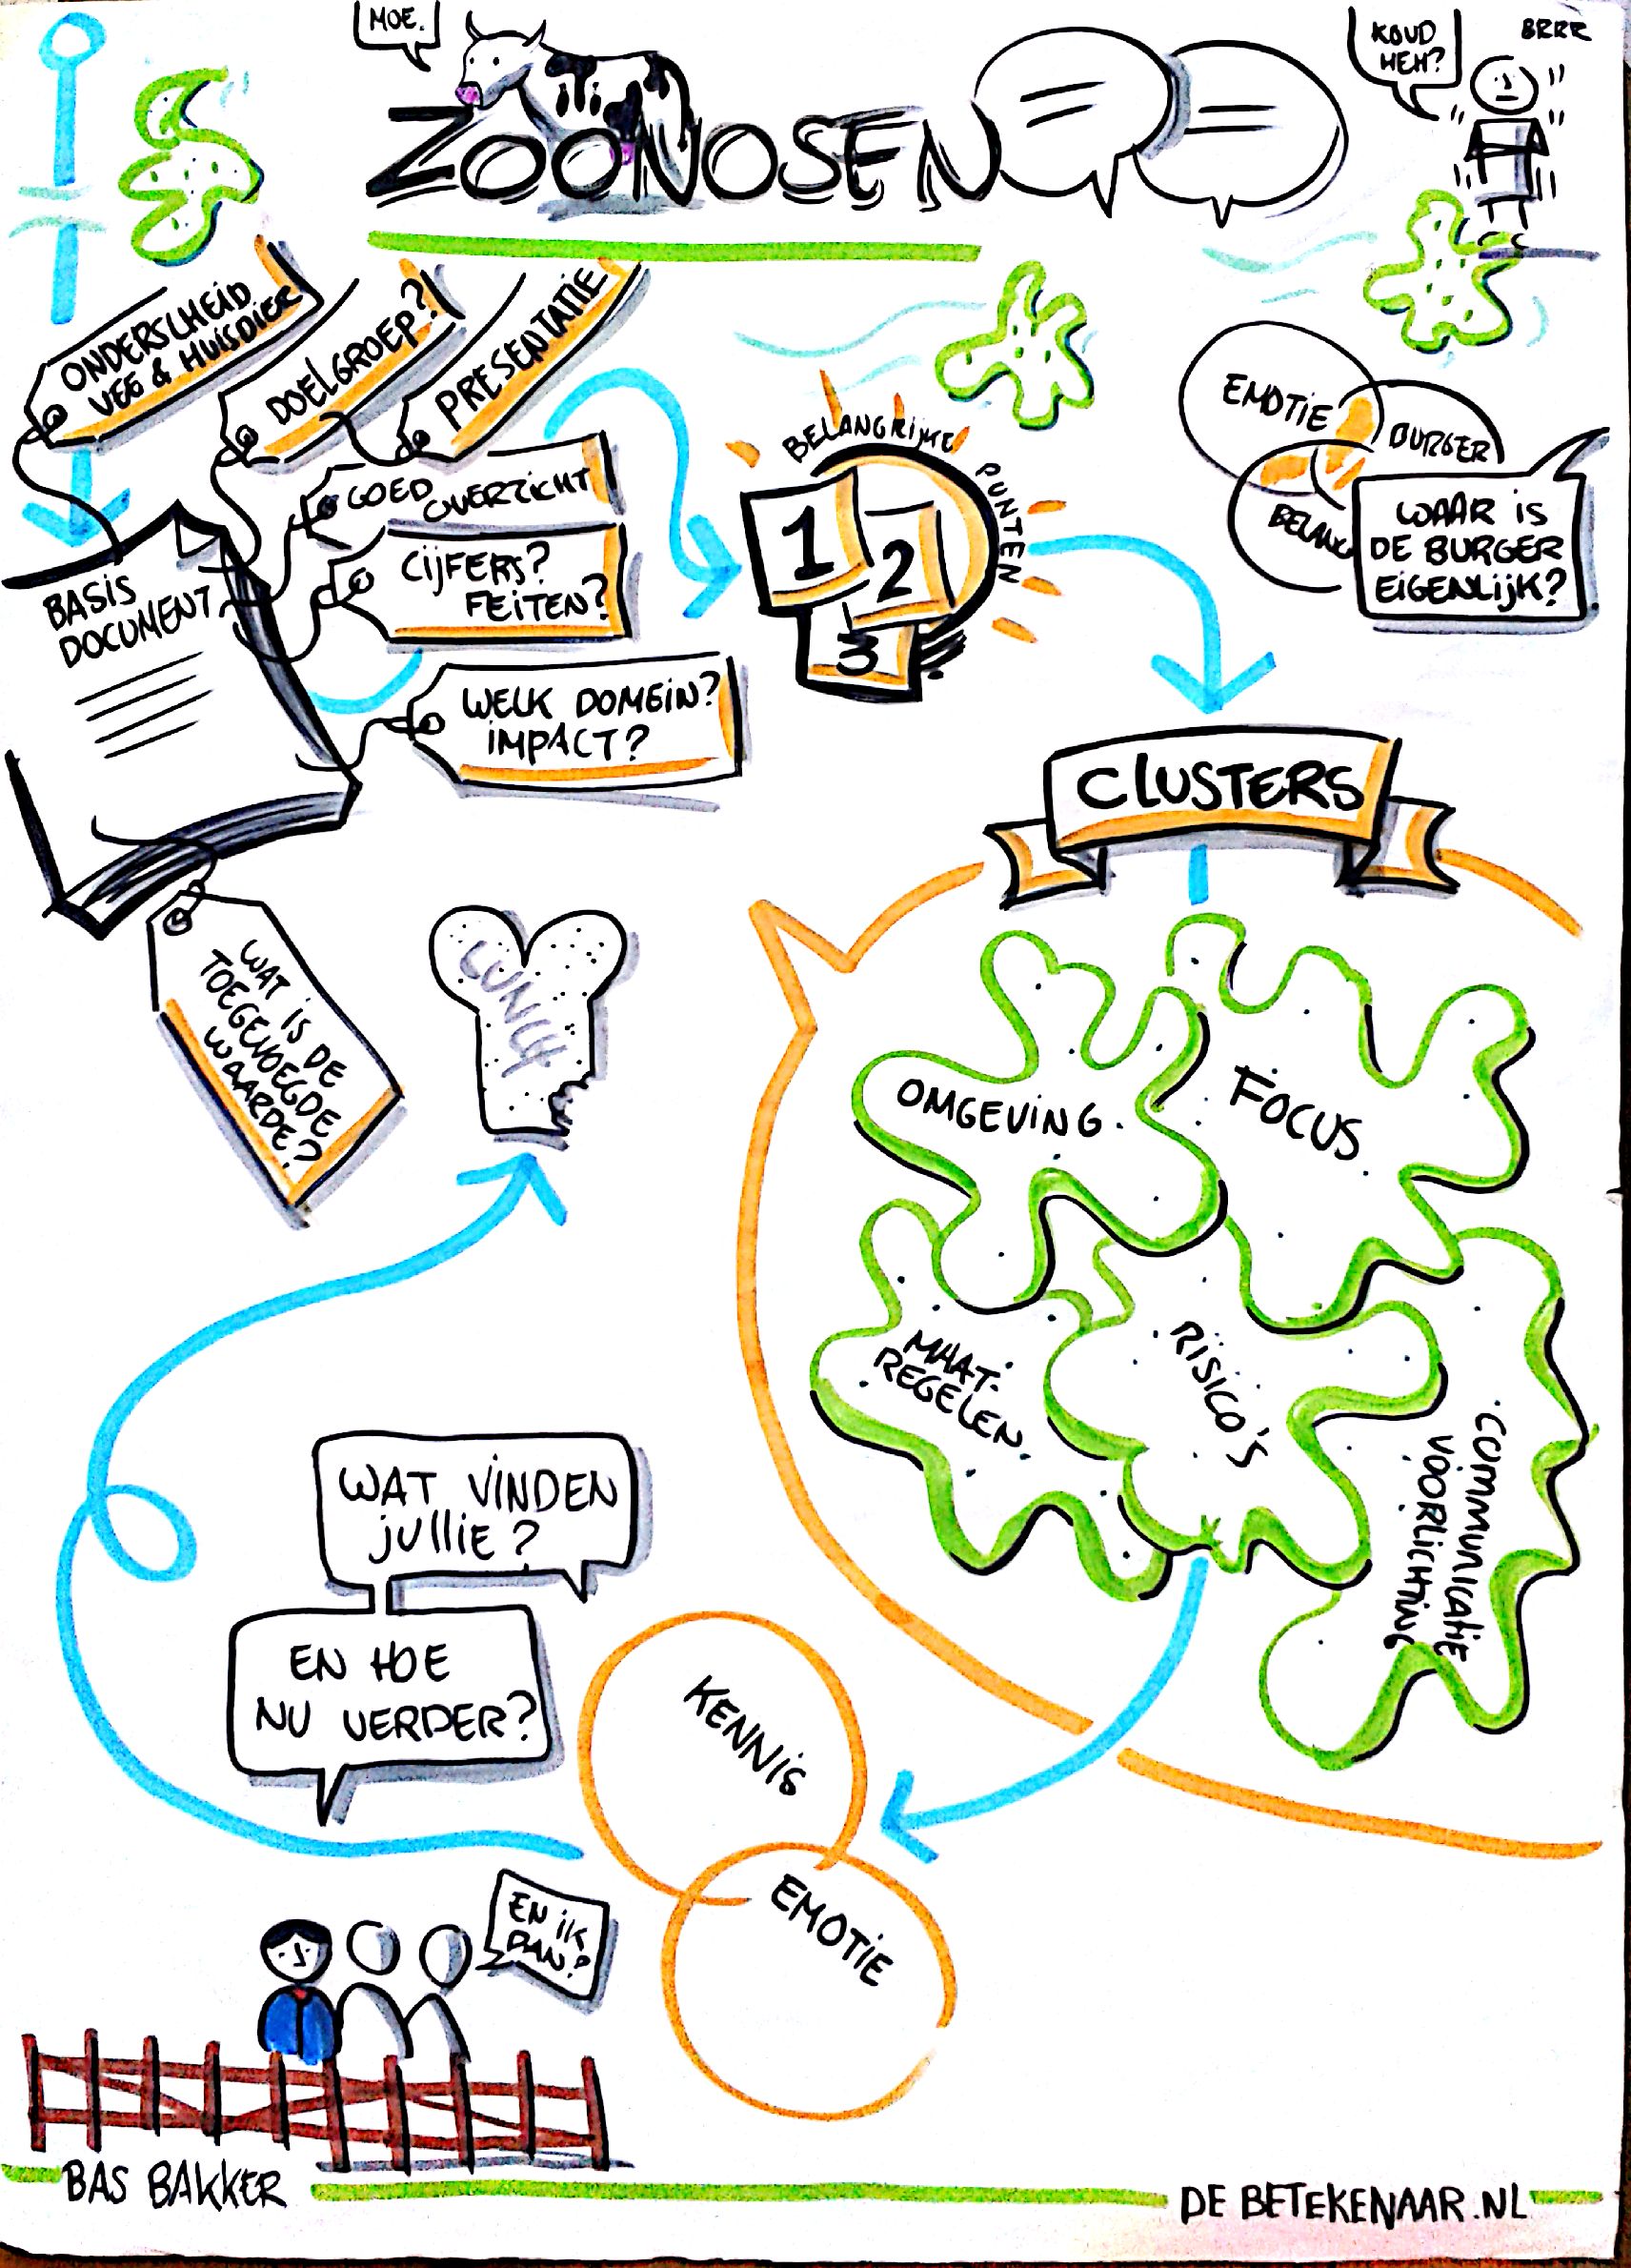 MOE.
ZOONOSEN
KOUD
HEH?
BRRR
ONDERSCHEID
VEE & HUISDIER
DOELGROEP?
PRESENTATIE
GOED
OVERZICHT
CIJFERS?
FEITEN?
WELK DOMEIN?
IMPACT?
BASIS
DOCUMENT
WAT IS DE
TOEGEVOEGDE
WAARDE?
BELANGRIJKE PUNTEN
1
2
3
EMOTIE
BURGER
BELANG
WAAR IS
DE BURGER
EIGENLIJK?
CLUSTERS
OMGEVING
FOCUS
MAAT-
REGELEN
RISICO'S
COMMUNICATIE
VOORLICHTING
LUNCH
WAT VINDEN
jullie?
EN HOE
NU VERDER?
KENNIS
EMOTIE
EN IK
DAN?
BAS BAKKER
DE BETEKENAAR.NL